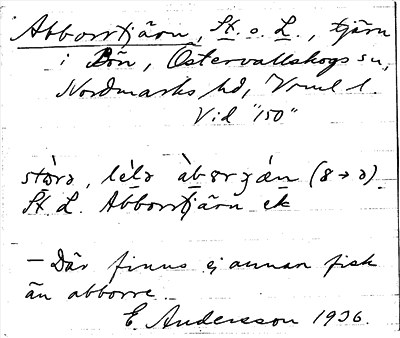 Abborrtjärn, St. o. L., tjärn
i Bön, Östervallskogs sn,
Nordmarks hd, Vrml l.
Vid "150"
stṑrə, lèlə àbərχæn (8→ə)
St. L. Abborrtjärn ek
— Där finns ej annan fisk
än abborre
E. Andersson 1936.